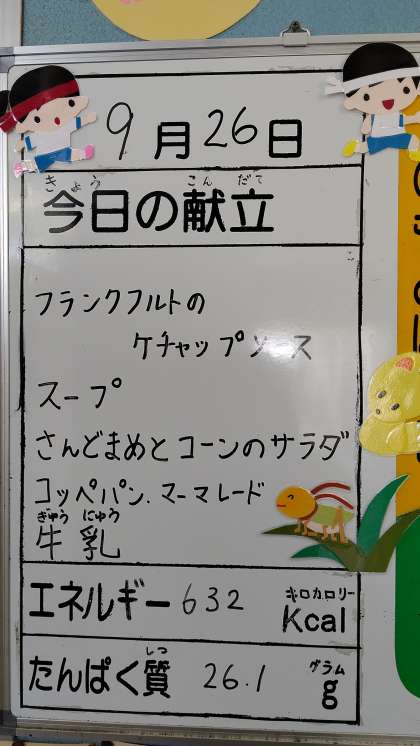 9月26日
きょう こんだて
今日の献立
フランクフルトの
ケチャップソース
スープ
さんどまめとコーンのサラダ
コッペパン.マーマレード
ぎゅう にゅう
牛乳
エネルギー 632 キロカロリー Kcal
しつ
たんぱく質 26.1 グラム g